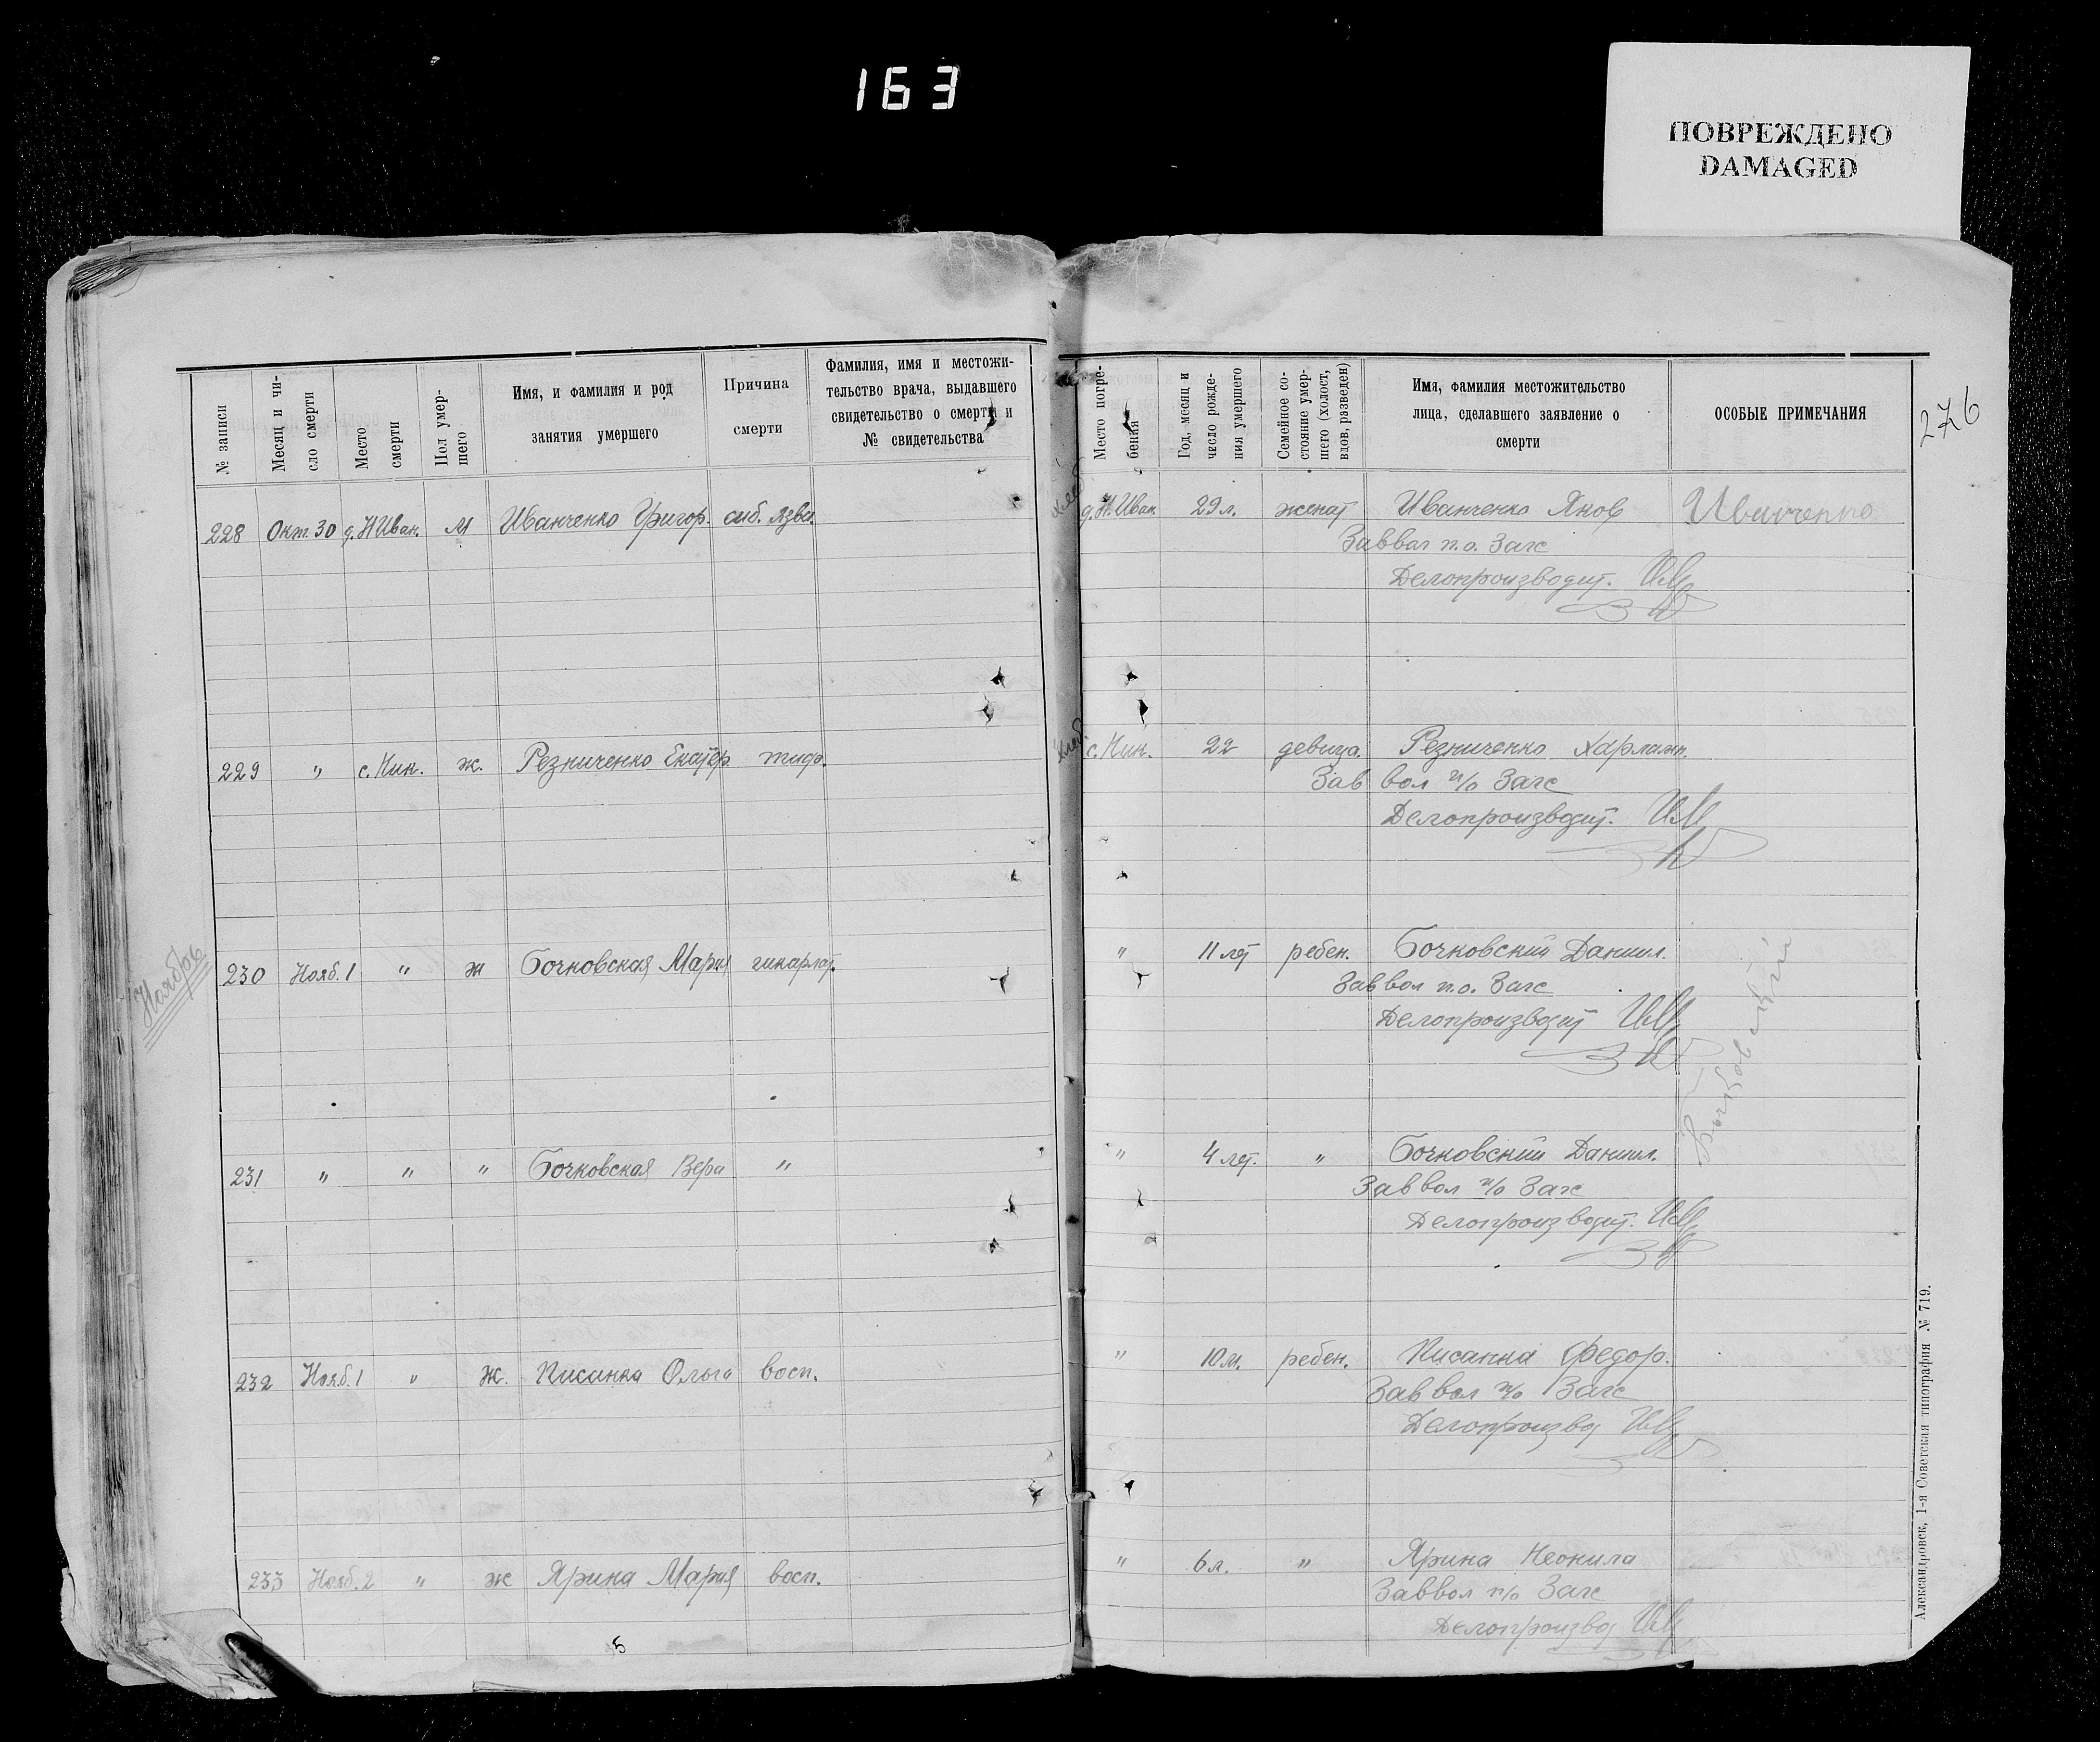 163
ПОВРЕЖДЕНО
DAMAGED
№ записи
Месяц и чи-
сло смерти
Место
смерти
Пол умер-
шего
Имя, и фамилия и род
занятия умершего
Причина
смерти
Фамилия, имя и местожи-
тельство врача, выдавшего
свидетельство о смерти и
№ свидетельства
Место погре-
бения
Год, месяц и
число рожде-
ния умершего
Семейное со-
стояние умер-
шего (холост,
вдов, разведен)
Имя, фамилия местожительство
лица, сделавшего заявление о
смерти
ОСОБЫЕ ПРИМЕЧАНИЯ
276
228 Окт. 30 д. Н Иван. М Иванченко Григор. сиб. язва. д. Н. Иван. 29 л. женат Иванченко Яков Иванченко
Заввол п.о. Загс
Делопроизводит.
229 " с. Ник. ж. Резниченко Екатер тиф. с. Ник. 22 девица. Резниченко Харламп.
Зав вол п/о Загс
Делопроизводит.
Ноябрь
230 Нояб. 1 " ж Бочковская Мария скарлат. " 11 лет ребен. Бочковский Даниил.
Заввол п.о. Загс
Делопроизводит
Бочковский
231 " " " Бочковская Вера " " 4 лет. " Бочковский Даниил.
Заввол п/о Загс
Делопроизводит.
232 Нояб. 1 " Ж. Кисанка Ольга восп. " 10 м. ребен. Кисанка Федор.
Заввол п/о Загс
Делопроизвод
233 Нояб. 2 " ж Ярина Мария восп. " 6 л. " Ярина Неонила
Заввол п/о Загс
Делопроизвод
5
Александровск, 1-я Советская типография № 719.